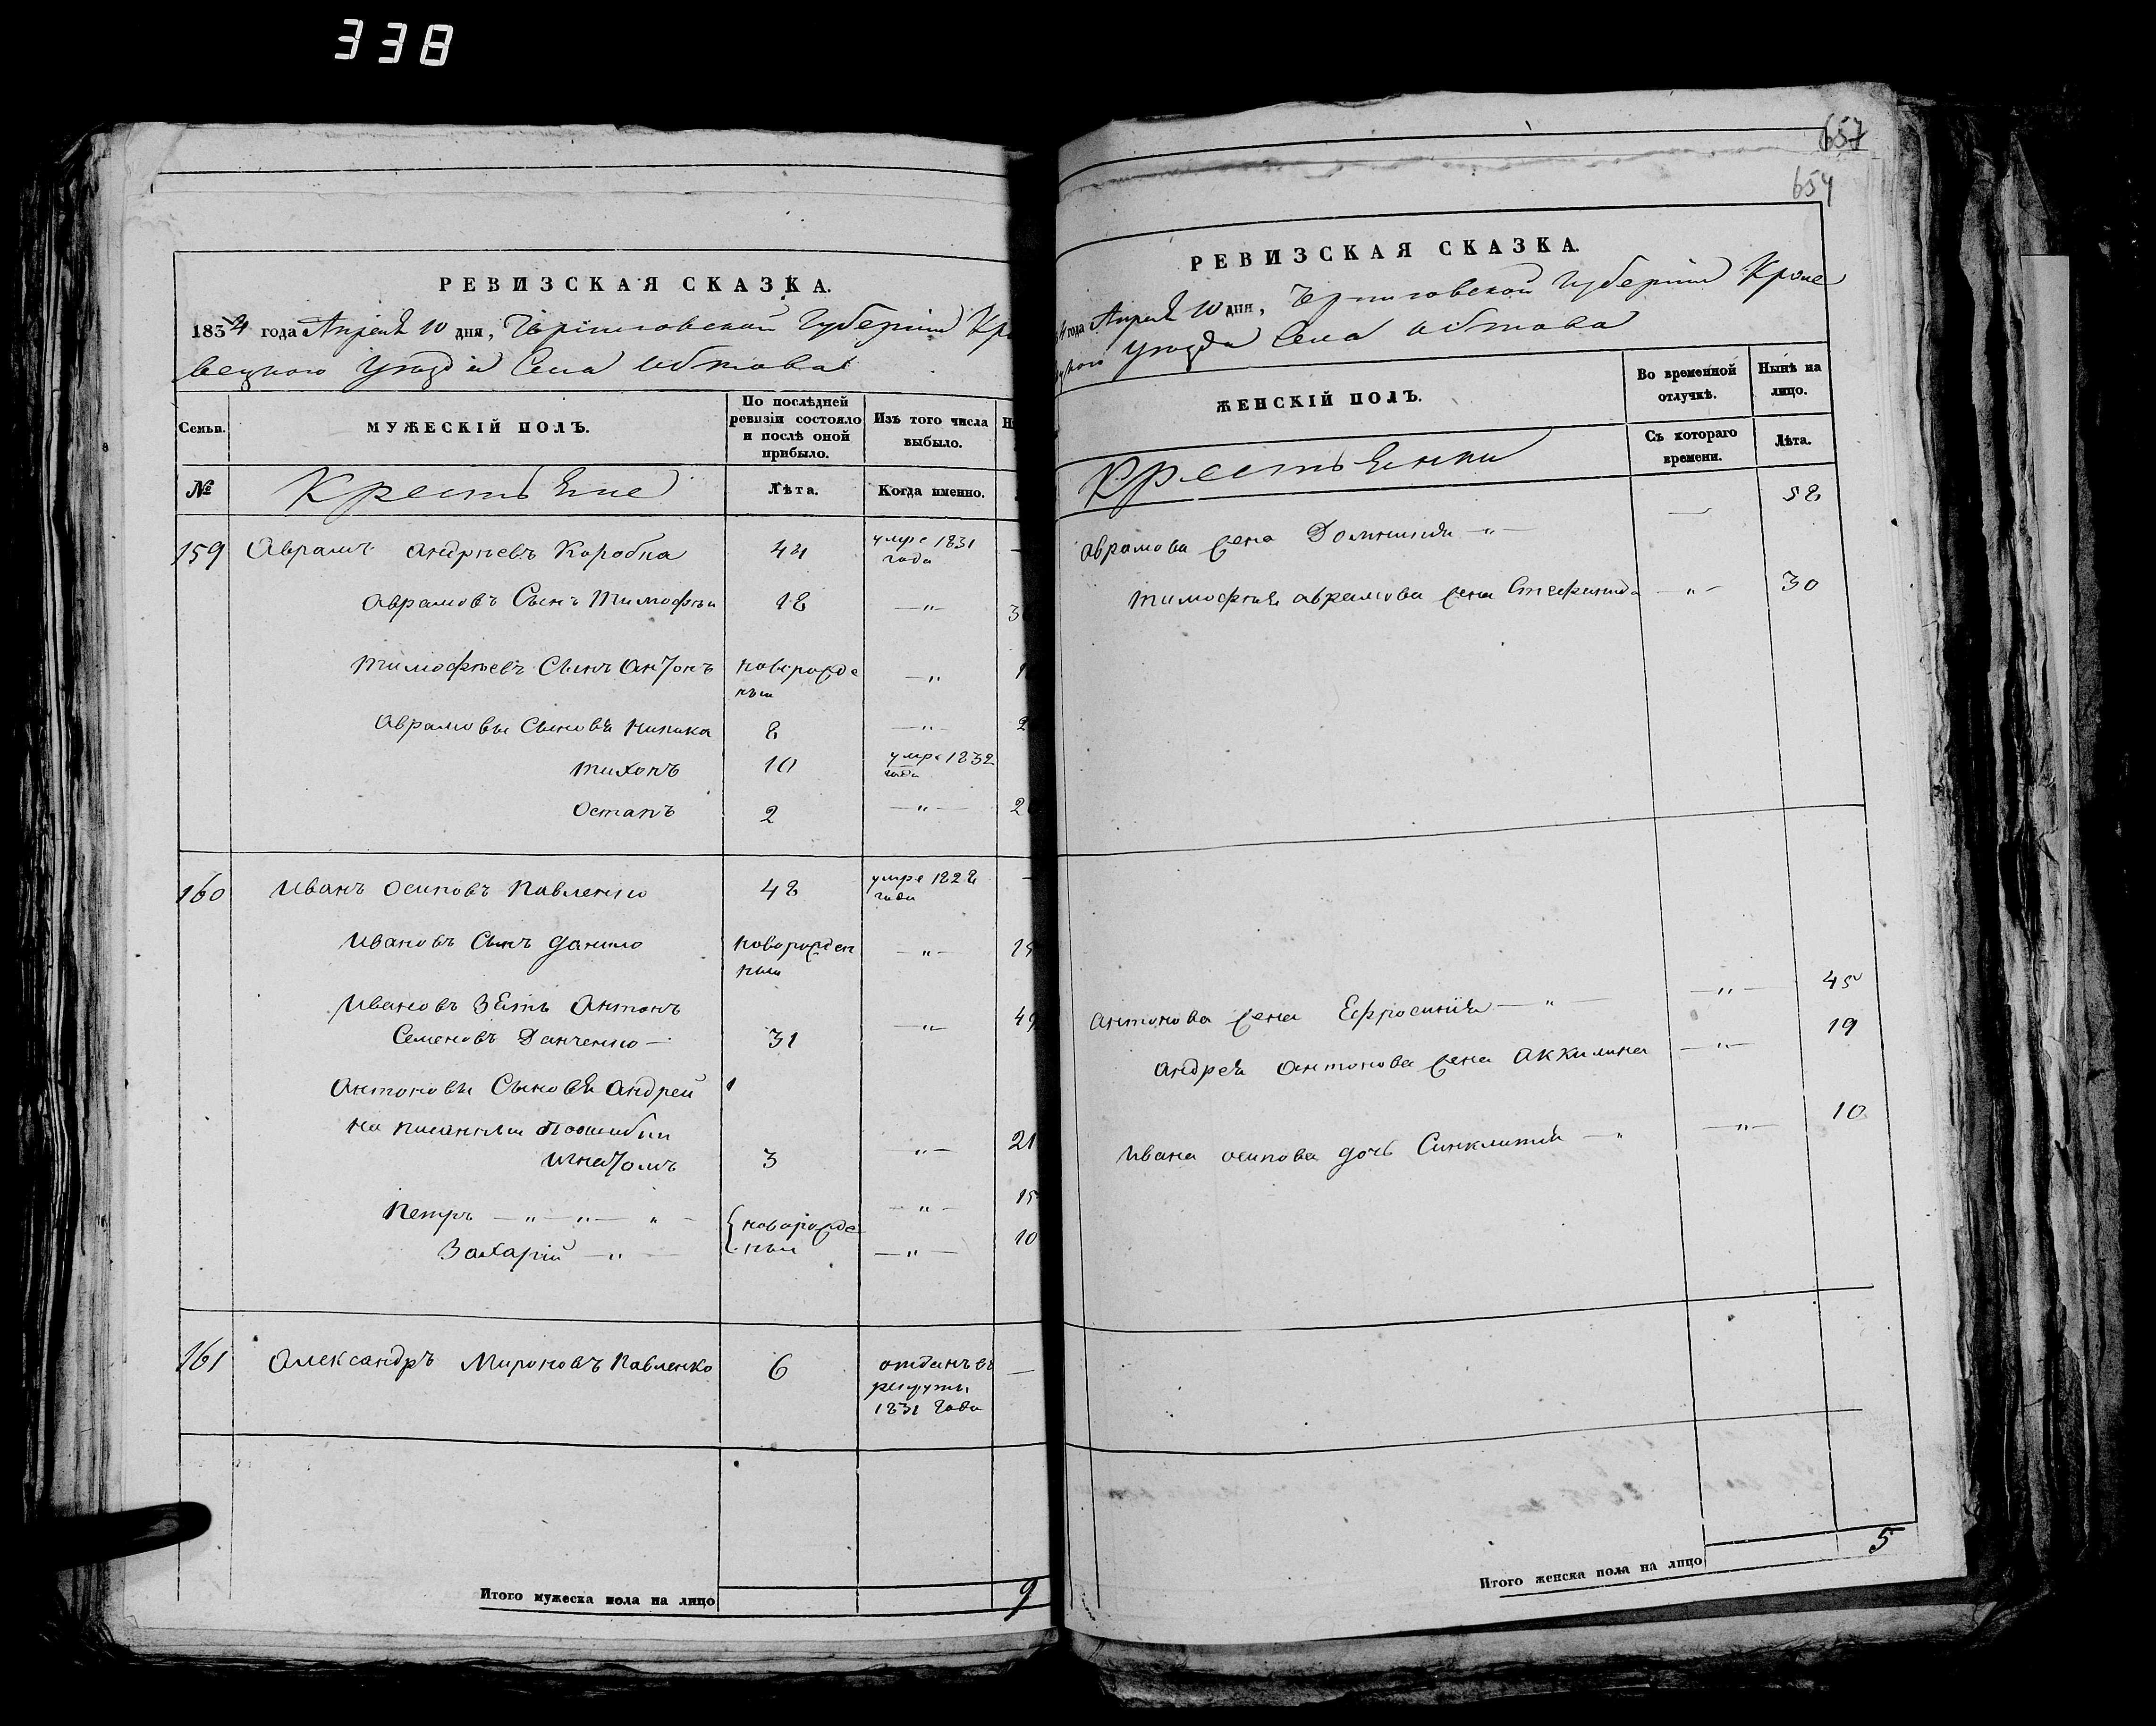 338
РЕВИЗСКАЯ СКАЗКА.
1834 года Апреля 10 дня, Черниговской Губернии Кро
вецкого Уезда Села Обтова
Семьи.
МУЖЕСКІЙ ПОЛЪ.
По послѣдней
ревизіи состояло
и послѣ оной
прибыло.
Изъ того числа
выбыло.
№
Крестьяне
Лѣта.
Когда именно.
159 Аврамъ Андреевъ Коробка 44 умре 1831
года
Аврамовъ Сынъ Тимофѣй 18 — " —
Тимофѣевъ Сынъ Антонъ новорожде — "
ный
Аврамовы Сыновья Никита 8 — " —
Тихонъ 10 умре 1832
года
Остапъ 2 — " —
160 Иванъ Осиповъ Павленко 48 умре 1828
года
Ивановъ Сынъ Данило новорожден — " —
ный
Ивановъ Зять Антонъ
Семеновъ Данченко — 31 — " —
Антоновы Сыновья Андрей
Написанный Поошибки
Игнатомъ 3 — " — 21
Петръ — " — " — " — новорожде — " — 15
Захарій — " — ный — " — 10
161 Александръ Мироновъ Павленко 6 отданъ въ —
рекруты
1831 года
Итого мужеска пола на лицо 9
657
654
РЕВИЗСКАЯ СКАЗКА.
4 года Апреля 10 дня, Черниговской Губернии Кроле
цкого Уезда Села Обтова
ЖЕНСКІЙ ПОЛЪ.
Во временной
отлучкѣ.
Нынѣ на
лицо.
Съ котораго
времени.
Лѣта.
Крестьянки
Аврамова жена Домникия — " — — 58
Тимофея Аврамова жена Стефанида — " — 30
Антонова жена Ефросиния — " — — " — 45
Андрея Антонова жена Аккилина — " — 19
Ивана Осипова дочь Синклития — " — " — 10
Итого женска пола на лицо 5